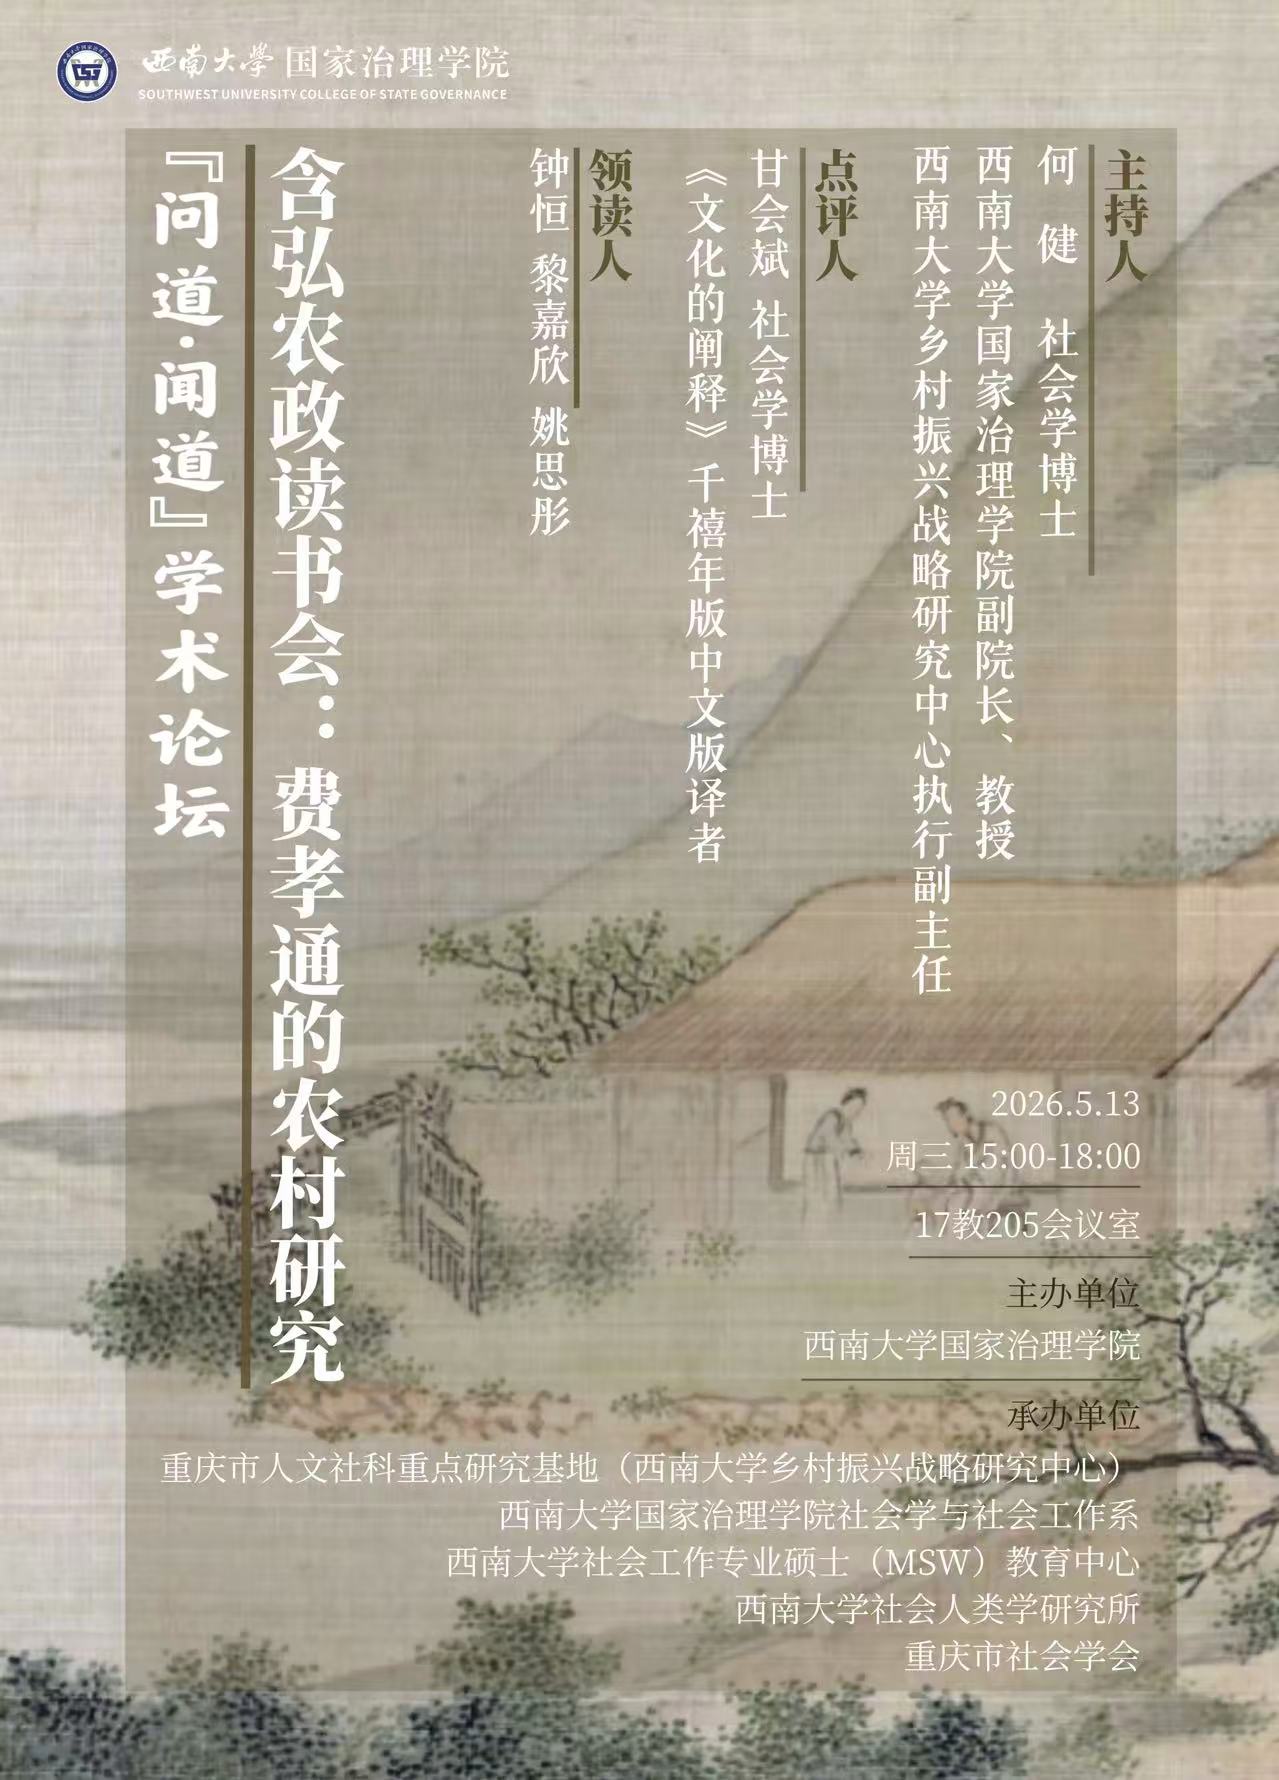 西南大学 国家治理学院
SOUTHWEST UNIVERSITY COLLEGE OF STATE GOVERNANCE
『问道·闻道』学术论坛
含弘农政读书会：费孝通的农村研究
主持人
何 健 社会学博士
西南大学国家治理学院副院长、教授
西南大学乡村振兴战略研究中心执行副主任
点评人
甘会斌 社会学博士
《文化的阐释》千禧年版中文版译者
领读人
钟恒 黎嘉欣 姚思彤
2026.5.13
周三 15:00-18:00
17教205会议室
主办单位
西南大学国家治理学院
承办单位
重庆市人文社科重点研究基地（西南大学乡村振兴战略研究中心）
西南大学国家治理学院社会学与社会工作系
西南大学社会工作专业硕士（MSW）教育中心
西南大学社会人类学研究所
重庆市社会学会